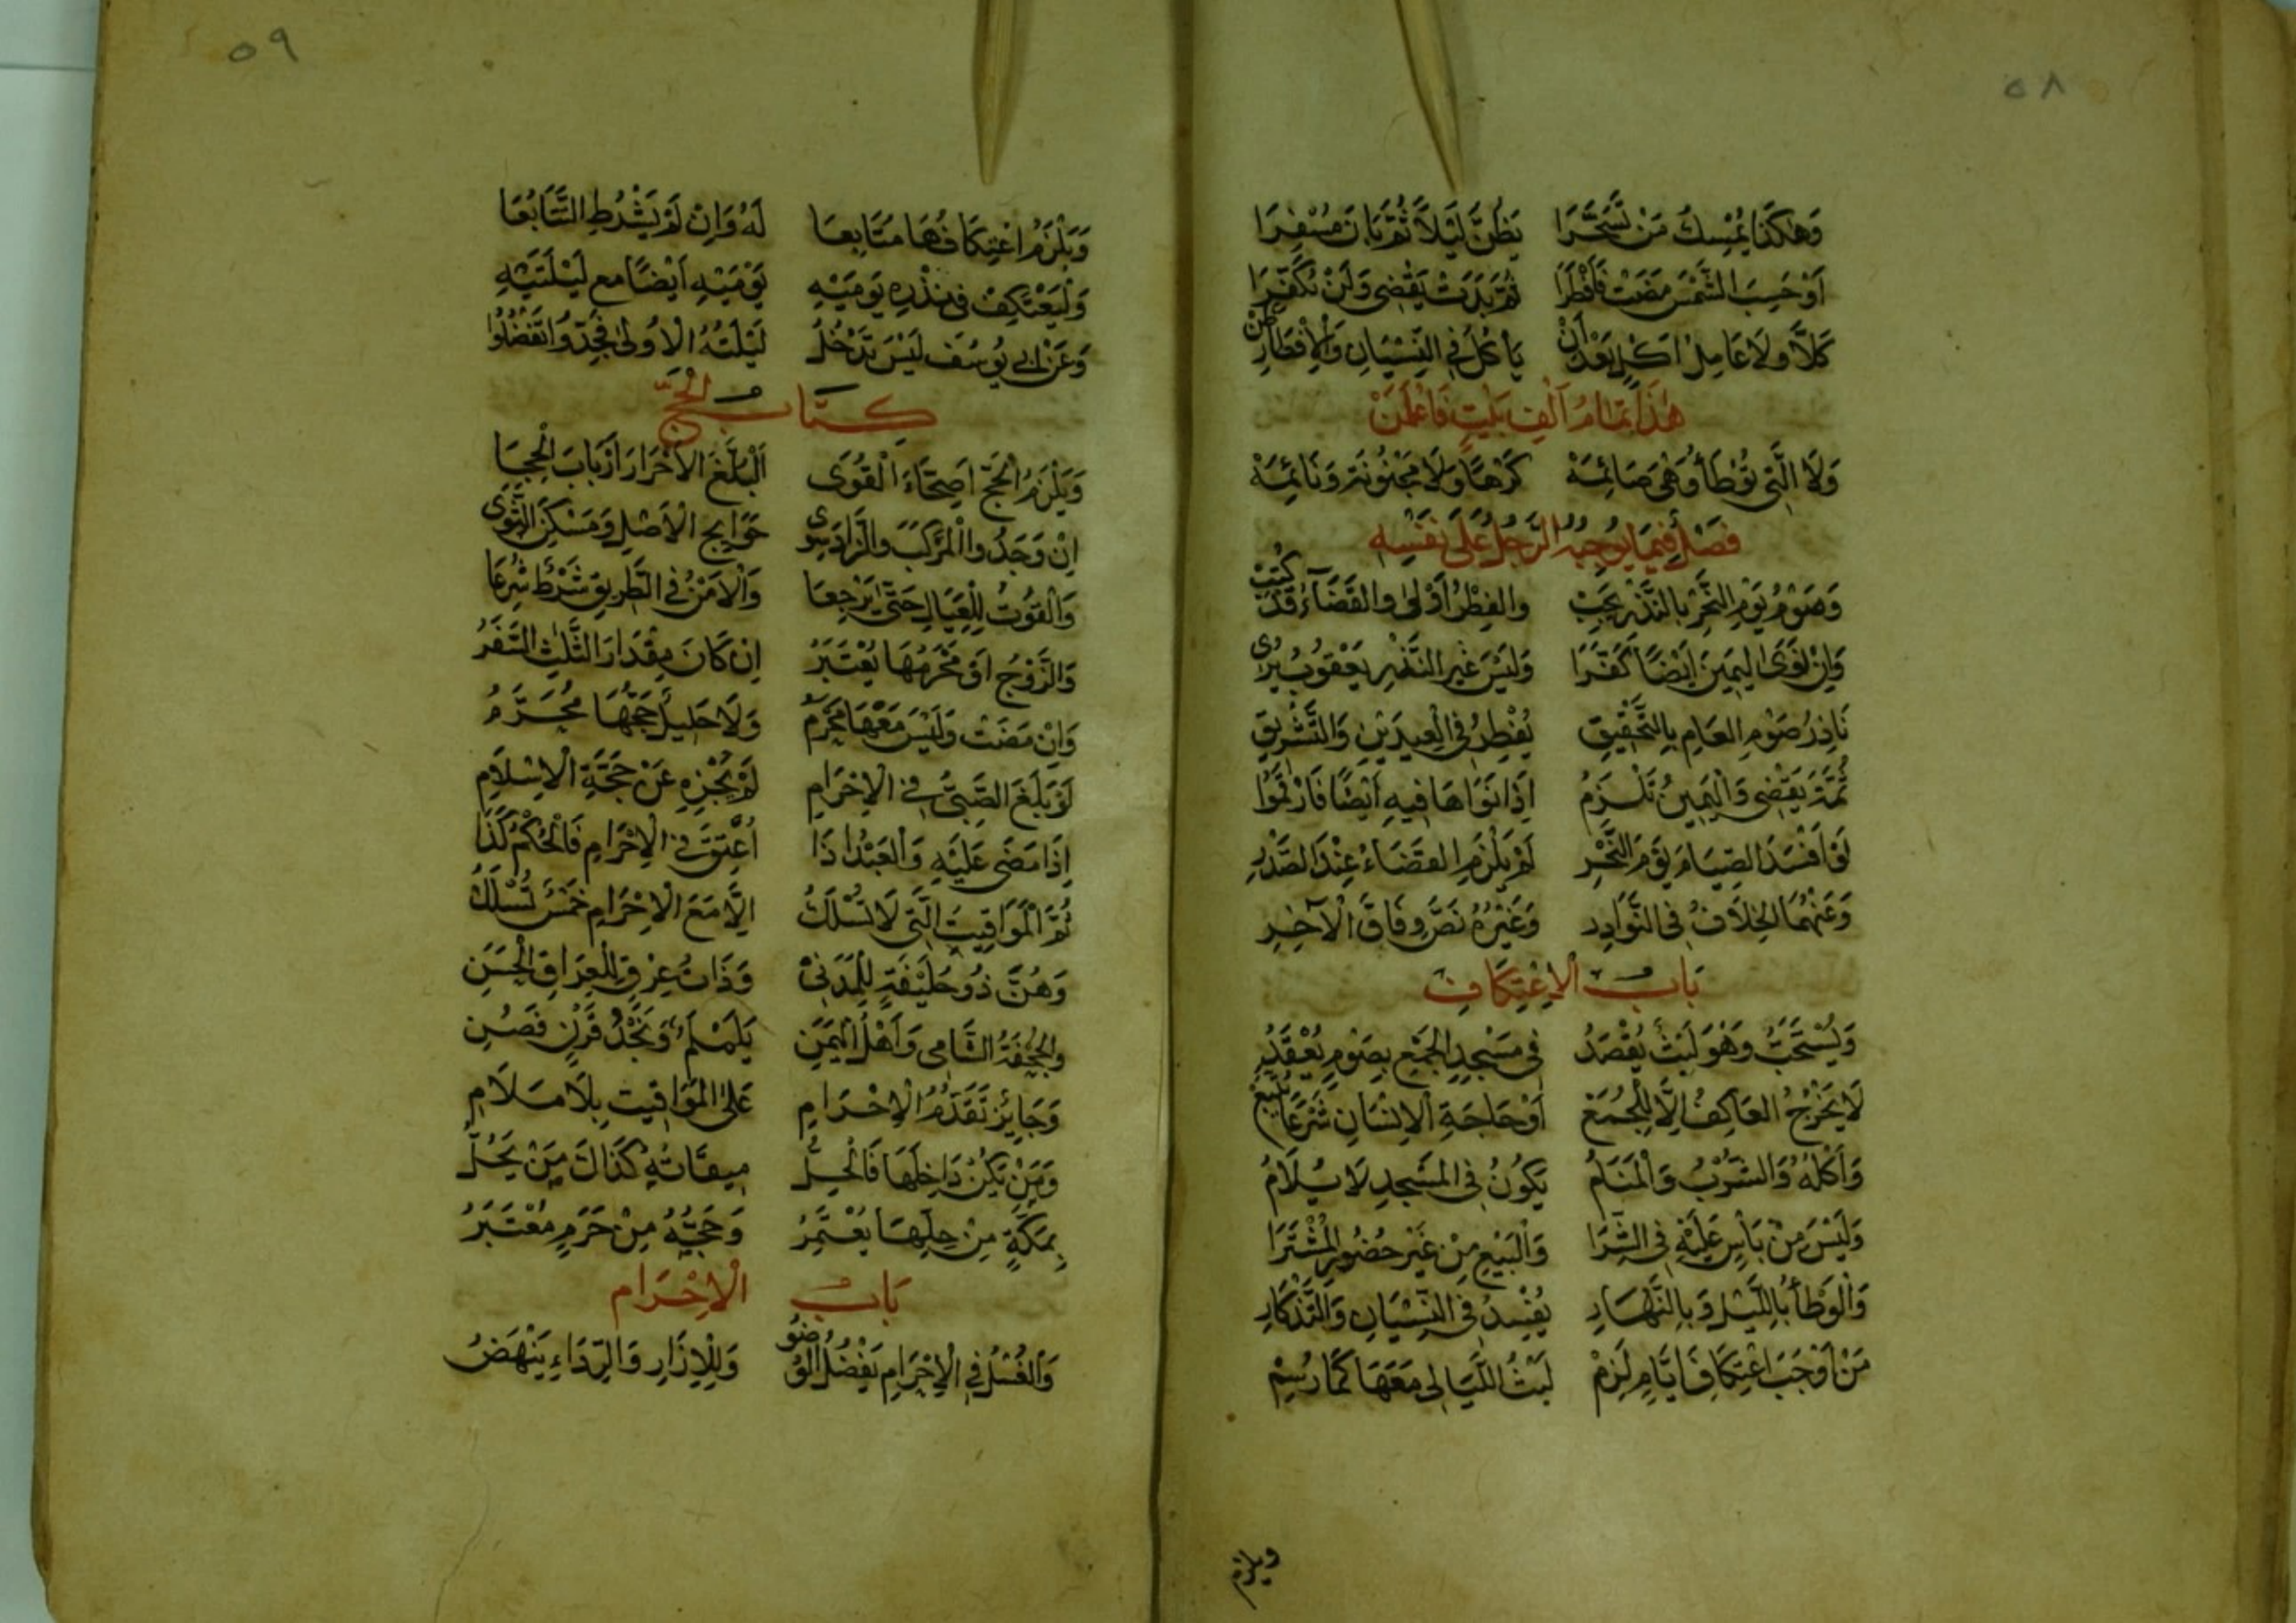 ٥٨
وَهٰكَذَا يُمْسِكُ مَنْ تَسَحَّرَا يَظُنُّ لَيْلاً ثُمَّ بَانَ مُسْفِرَا
اَوْ حَسِبَ الشَّمْسَ مَضَتْ فَأَفْطَرَا ثُمَّ بَدَتْ يَقْضِى وَلَنْ يُكَفِّرَا
كَلَّا وَلَا عَامِلُ اَكْلٍ بَعْدَ أَنْ يَأْكُلُ فِى النِّسْيَانِ وَالْاِفْطَارِ ظَنْ
هٰذَا تَمَامُ اَلْفِ بَيْتٍ فَاعْلَمَنْ
وَلَا الَّتِى تُوْطَأُ وَهْىَ صَائِمَهْ كَرْهًا وَلَا مَجْنُونَةٍ وَنَائِمَهْ
فَصْلٌ فِيمَا يُوجِبُهُ الرَّجُلُ عَلَى نَفْسِهِ
وَصَوْمُ يَوْمِ النَّحْرِ بِالنَّذْرِ يَجِبْ وَالفِطْرُ اَوْلٰى وَالقَضَاءُ قَدْ كُتِبْ
وَاِنْ نَوَى اليَمِينَ اَيْضًا كَفَّرَا وَلَيْسَ غَيْرَ النَّذْرِ يَعْقُوبُ يَرٰى
نَاذِرُ صَوْمِ العَامِ بِالتَّحْقِيقِ يُفْطِرُ فِى الْعِيدَيْنِ وَالتَّشْرِيقِ
ثُمَّةَ يَقْضِى وَالْيَمِينُ تَلْزَمُ اِذَا نَوَاهَا فِيهِ اَيْضًا فَارْقُمُوا
لَوْ اَفْسَدَ الصِّيَامَ يَوْمَ النَّحْرِ لَمْ يَلْزَمِ القَضَاءُ عِنْدَ الصَّدْرِ
وَعَنْهُمَا الخِلَافُ فِى النَّوَادِرِ وَغَيْرُهُ نَصَّ وِفَاقَ الْآخِرِ
بَابُ الْاِعْتِكَافِ
وَيُسْتَحَبُّ وَهْوَ لَبْثٌ يُقْصَدُ فِى مَسْجِدِ الجَمْعِ بِصَوْمٍ يُعْقَدُ
لَا يَخْرُجُ العَاكِفُ اِلَّا لِلْجُمَعْ اَوْ حَاجَةِ الْاِنْسَانِ شَرْعًا
وَأَكْلُهُ وَالشُّرْبُ وَالْمَنَامُ يَكُونُ فِى المَسْجِدِ لَا يُلَامُ
وَلَيْسَ مِنْ بَأْسٍ عَلَيْهِ فِى الشِّرَا وَالْبَيْعِ مِنْ غَيْرِ حُضُورِ الْمُشْتَرَا
وَالْوَطْأُ بِاللَّيْلِ وَبِالنَّهَارِ يُفْسِدُ فِى النِّسْيَانِ وَالتَّذْكَارِ
مَنْ اَوْجَبَ اعْتِكَافَ اَيَّامٍ لَزِمْ لَبْثُ اللَّيَالِى مَعَهَا كَمَا رُسِمْ
ويلزم
٥٩
وَيَلْزَمُ اعْتِكَافُهَا مُتَابِعَا لَهُ وَاِنْ لَمْ يَشْرُطِ التَّتَابُعَا
وَلْيَعْتَكِفْ فِى نَذْرِهِ يَوْمَيْهِ يَوْمَيْهِ اَيْضًا مَعَ لَيْلَتَيْهِ
وَعَنْ اَبِى يُوسُفَ لَيْسَ تَدْخُلُ لَيْلَتُهُ الْاُولٰى فَجِدُّوا تَفْضُلُوا
كِتَابُ الْحَجِّ
وَيَلْزَمُ الْحَجُّ اَصِحَّاءَ الْقُوَى اَلْبُلَّغَ الْاَحْرَارَ اَرْبَابَ الْحِجَا
اِنْ وَجَدُوا الْمَرْكَبَ وَالزَّادَ سِوَى حَوَايِجِ الْاَصْلِ وَمَسْكَنِ الثَّوٰى
وَالْقُوتُ لِلْعِيَالِ حَتّٰى يَرْجِعَا وَالْاَمْنُ فِى الطَّرِيقِ شَرْطٌ شُرِعَا
وَالزَّوْجُ اَوْ مَحْرَمُهَا يُعْتَبَرُ اِنْ كَانَ مِقْدَارَ الثَّلٰثِ السَّفَرُ
وَاِنْ مَضَتْ وَلَيْسَ مَعْهَا مَحْرَمُ وَلَا حَلِيلٌ حَجُّهَا مُحَرَّمُ
لَوْ بَلَغَ الصَّبِىُّ فِى الْاِحْرَامِ لَمْ يُجْزِهِ عَنْ حَجَّةِ الْاِسْلَامِ
اِذَا مَضَى عَلَيْهِ وَالْعَبْدُ اِذَا اُعْتِقَ فِى الْاِحْرَامِ فَالْحُكْمُ كَذَا
ثُمَّ الْمَوَاقِيتُ الَّتِى لَا تُسْلَكُ اِلَّا مَعَ الْاِحْرَامِ خَمْسٌ تُسْلَكُ
وَهُنَّ ذُو حُلَيْفَةٍ لِلْمَدَنِىْ وَذَاتُ عِرْقٍ لِلْعِرَاقِ الْحَسَنِ
وَالْجُحْفَةُ الشَّامِى وَاَهْلُ الْيَمَنِ يَلَمْلَمٌ وَنَجْدُ قَرْنٍ فَصُنِ
وَجَائِزٌ تَقَدُّمُ الْاِحْرَامِ عَلَى الْمَوَاقِيتِ بِلَا مَلَامِ
وَمَنْ يَكُنْ دَاخِلَهَا فَالْحِلُّ مِيقَاتُهُ كَذَاكَ مَنْ يَحُلُّ
بِمَكَّةٍ مِنْ حِلِّهَا يُعْتَمَرُ وَحَجُّهُ مِنْ حَرَمٍ مُعْتَبَرُ
بَابُ الْاِحْرَامِ
وَالْغُسْلُ فِى الْاِحْرَامِ يَفْضُلُ الْوُضُو وَلِلْاِزَارِ وَالرِّدَاءِ يَنْهَضُ